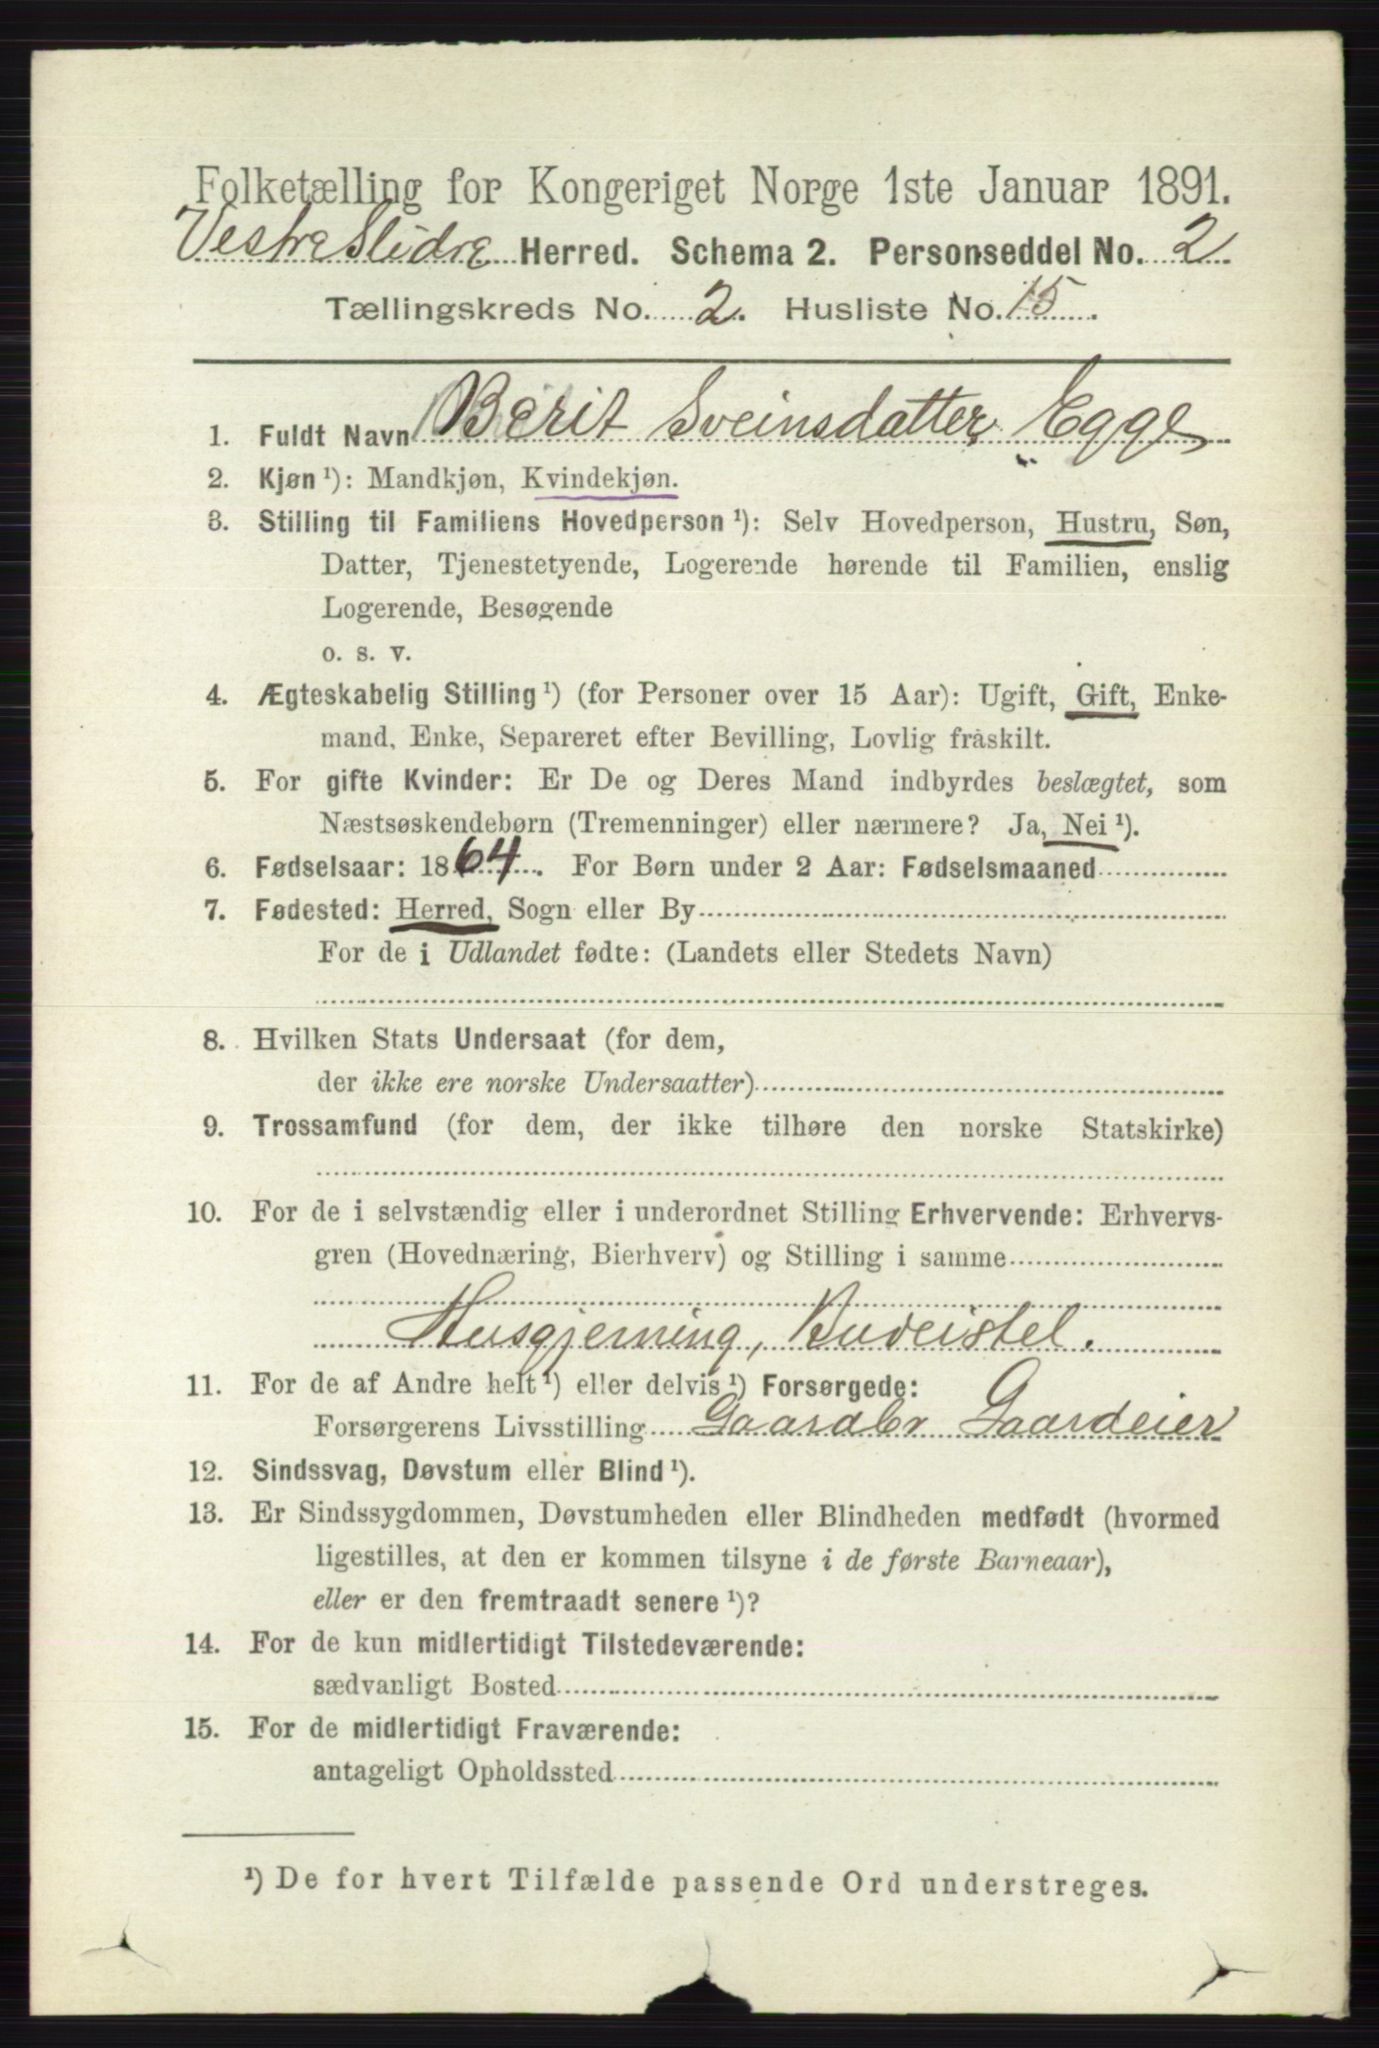 Folketælling for Kongeriget Norge 1ste Januar 1891.
Vestre Slidre Herred. Schema 2. Personseddel No. 2
Tællingskreds No. 2. Husliste No. 15.
1. Fuldt Navn Berit Sveinsdatter Egge
2. Kjøn ¹): Mandkjøn, Kvindekjøn.
3. Stilling til Familiens Hovedperson ¹): Selv Hovedperson, Hustru, Søn,
Datter, Tjenestetyende, Logerende hørende til Familien, enslig
Logerende, Besøgende
o. s. v.
4. Ægteskabelig Stilling ¹) (for Personer over 15 Aar): Ugift, Gift, Enke-
mand, Enke, Separeret efter Bevilling, Lovlig fraskilt.
5. For gifte Kvinder: Er De og Deres Mand indbyrdes beslægtet, som
Næstsøskendebørn (Tremenninger) eller nærmere? Ja, Nei ¹).
6. Fødselsaar: 1864. For Børn under 2 Aar: Fødselsmaaned
7. Fødested: Herred, Sogn eller By
For de i Udlandet fødte: (Landets eller Stedets Navn)
8. Hvilken Stats Undersaat (for dem,
der ikke ere norske Undersaatter)
9. Trossamfund (for dem, der ikke tilhøre den norske Statskirke)
10. For de i selvstændig eller i underordnet Stilling Erhvervende: Erhvervs-
gren (Hovednæring, Bierhverv) og Stilling i samme
Husgjerning, Budeistel.
11. For de af Andre helt ¹) eller delvis ¹) Forsørgede:
Forsørgerens Livsstilling Gaardbr Gaardeier
12. Sindssvag, Døvstum eller Blind ¹).
13. Er Sindssygdommen, Døvstumheden eller Blindheden medfødt (hvormed
ligestilles, at den er kommen tilsyne i de første Barneaar),
eller er den fremtraadt senere ¹)?
14. For de kun midlertidigt Tilstedeværende:
sædvanligt Bosted
15. For de midlertidigt Fraværende:
antageligt Opholdssted
¹) De for hvert Tilfælde passende Ord understreges.